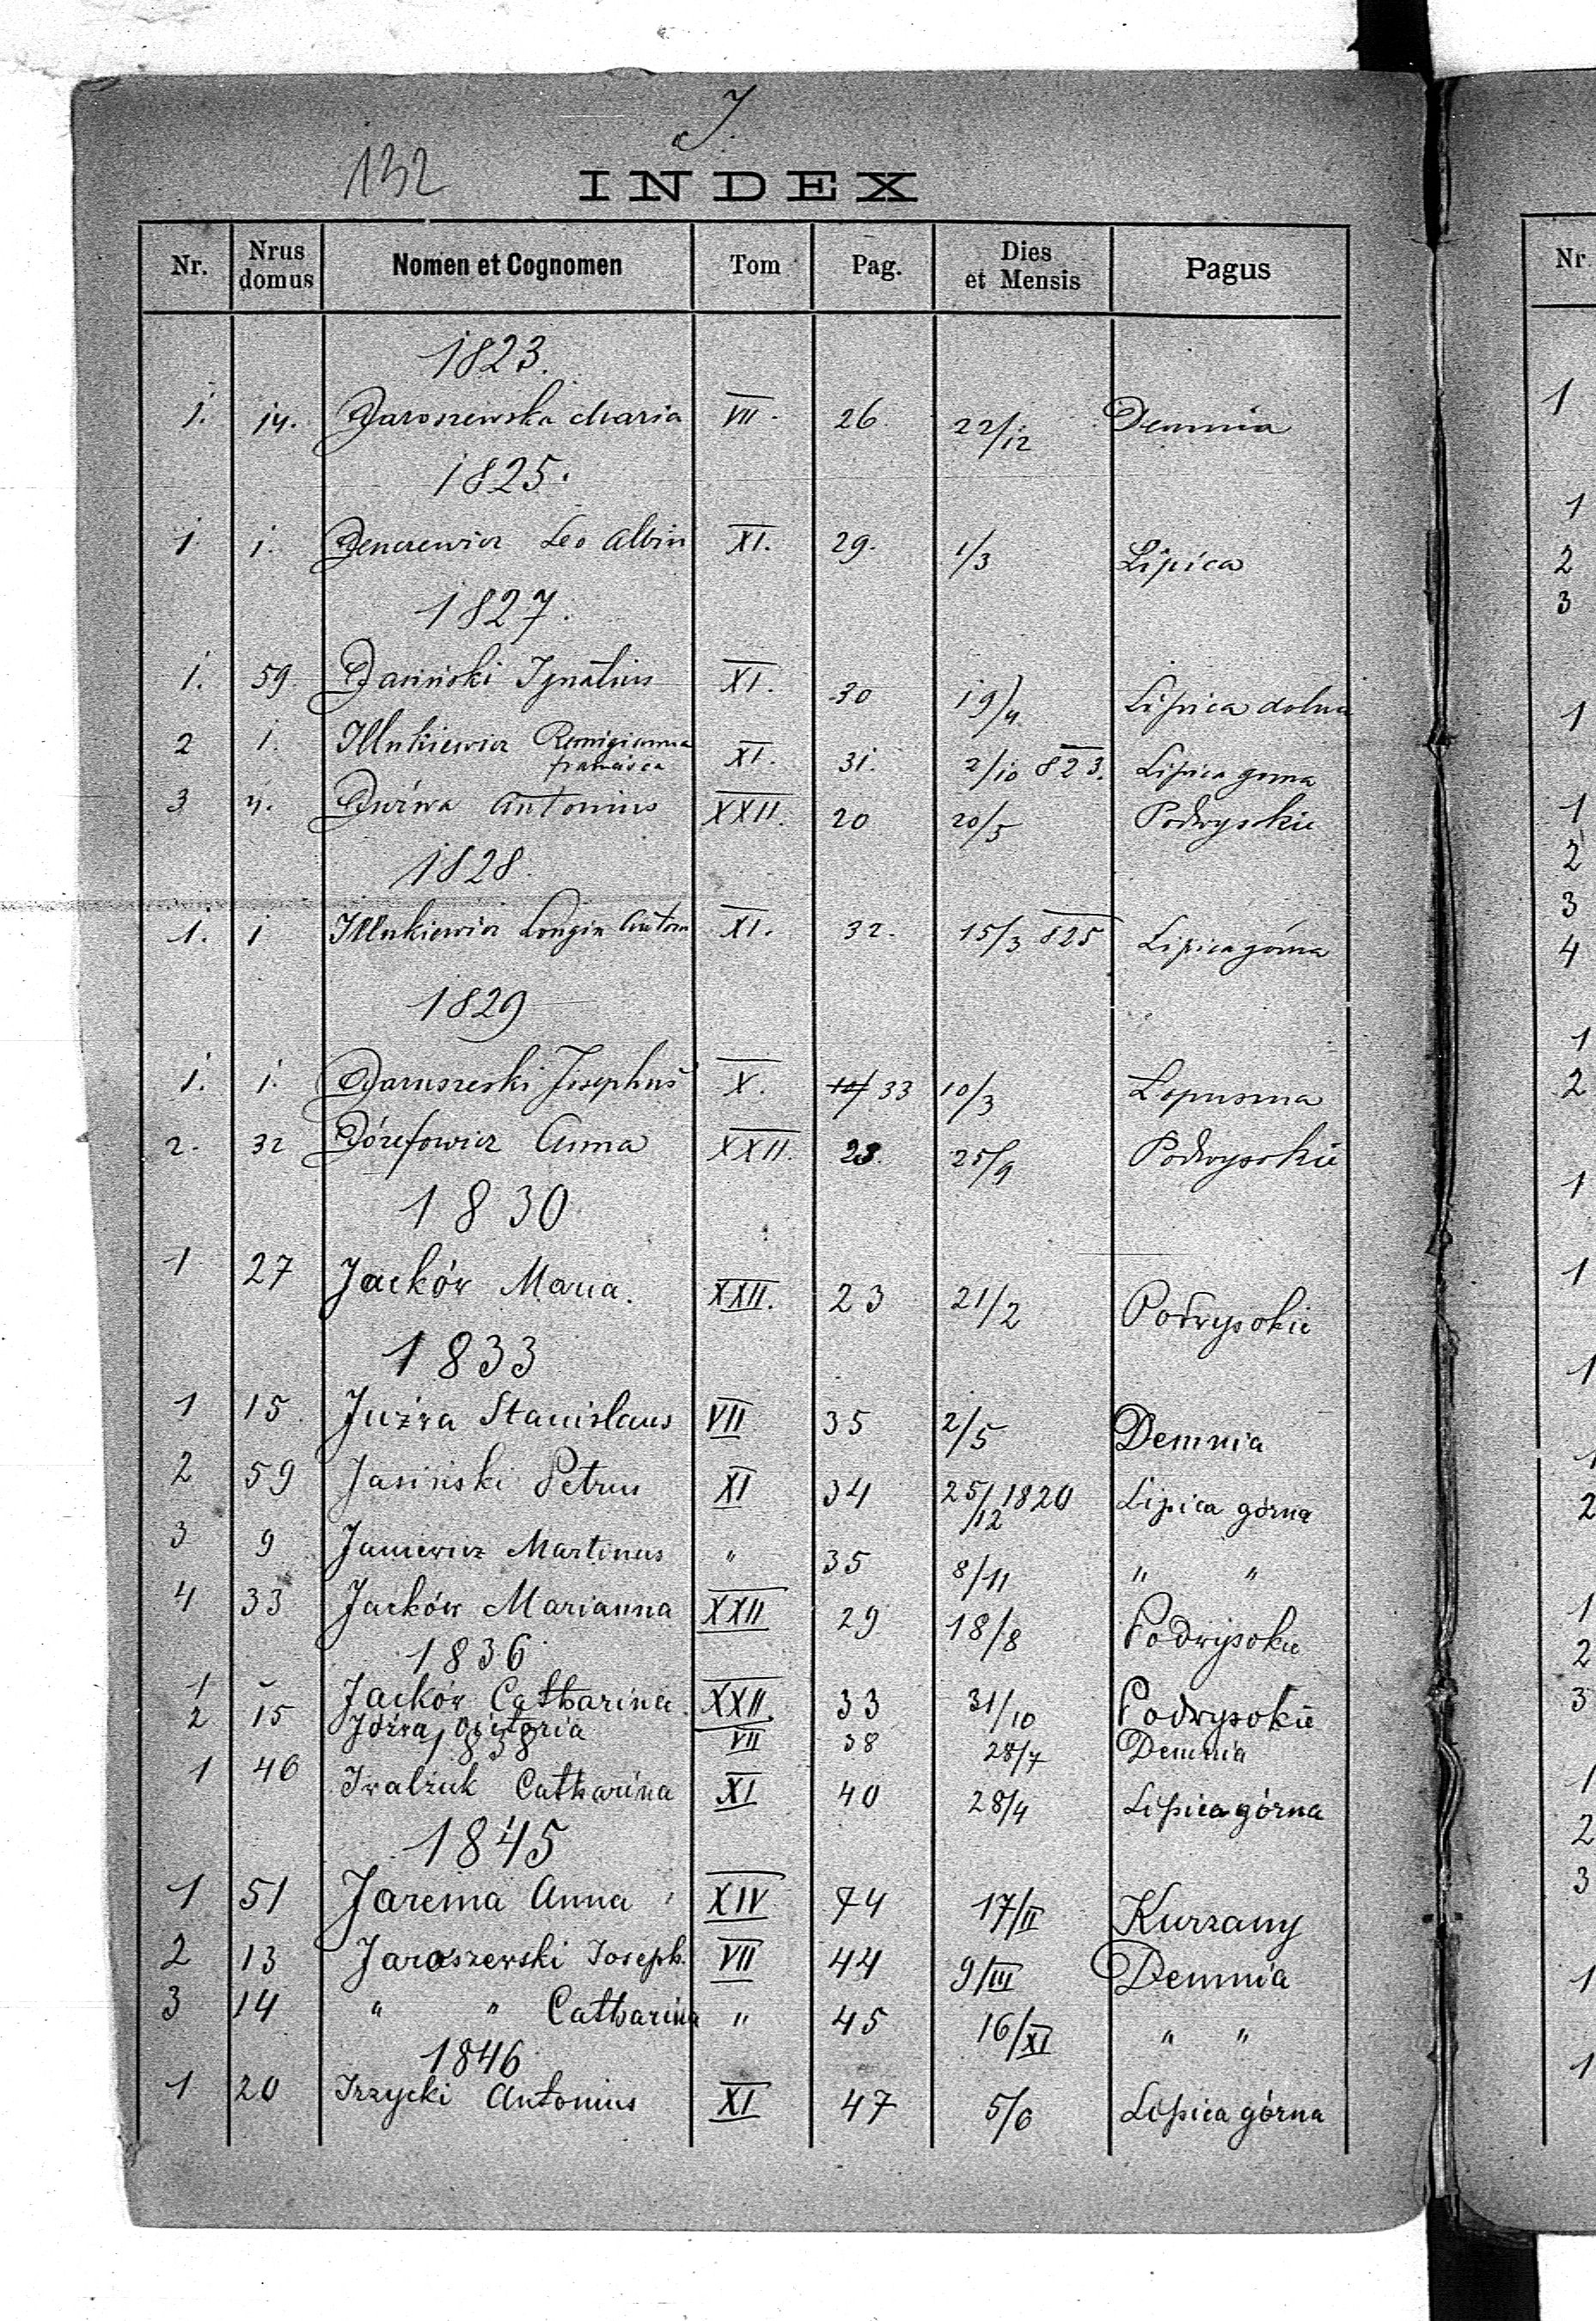 J.
132
INDEX
Nr. Nrus domus Nomen et Cognomen Tom Pag. Dies et Mensis Pagus
1823.
1. 14. Jaroszewska Maria VII. 26. 22/12 Demnia
1825.
1. 1. Jencewicz Leo Albin XI. 29. 1/3 Lipica
1827.
1. 59. Jasiński Ignatius XI. 30 19/4 Lipica dolna
2 1. Illukiewicz Remigianna XI. 31. 2/10 823. Lipica gorna
francisca
3 4. Juźwa Antonius XXII. 20 20/5 Podwysokie
1828.
1. 1 Illukiewicz Longin Anton XI. 32. 15/3 825 Lipica górna
1829
1. 1. Jaruszeski Josephus X. 33 10/3 Lopuszna
2. 32 Józefowicz Anna XXII. 23. 25/9 Podwysokie
1830
1 27 Jacków Maria. XXII. 23 21/2 Podwysokie
1833
1 15. Juźwa Stanislaus VII 35 2/5 Demnia
2 59 Jasiński Petrus XI 34 25/12 1820 Lipica górna
3 9 Janiewicz Martinus " 35 8/11 " "
4 33 Jacków Marianna XXII 29 18/8 Podwysokie
1836
1 - Jacków Catharina XXII. 33 31/10 Podwysokie
2 15 Józwa, Victoria VII 38 28/7 Demnia
1838
1 46 Iwalzuk Catharina XI 40 28/4 Lipica górna
1845
1 51 Jarema Anna XIV 74 17/II Kurzany
2 13 Jaroszewski Joseph. VII 44 9/III Demnia
3 14 " " Catharina " 45 16/XI " "
1846
1 20 Irzycki Antonius XI 47 5/6 Lipica górna
Nr
1
1
2
3
1
1
2
3
4
1
2
1
1
1
1
2
1
2
3
1
2
3
1
1